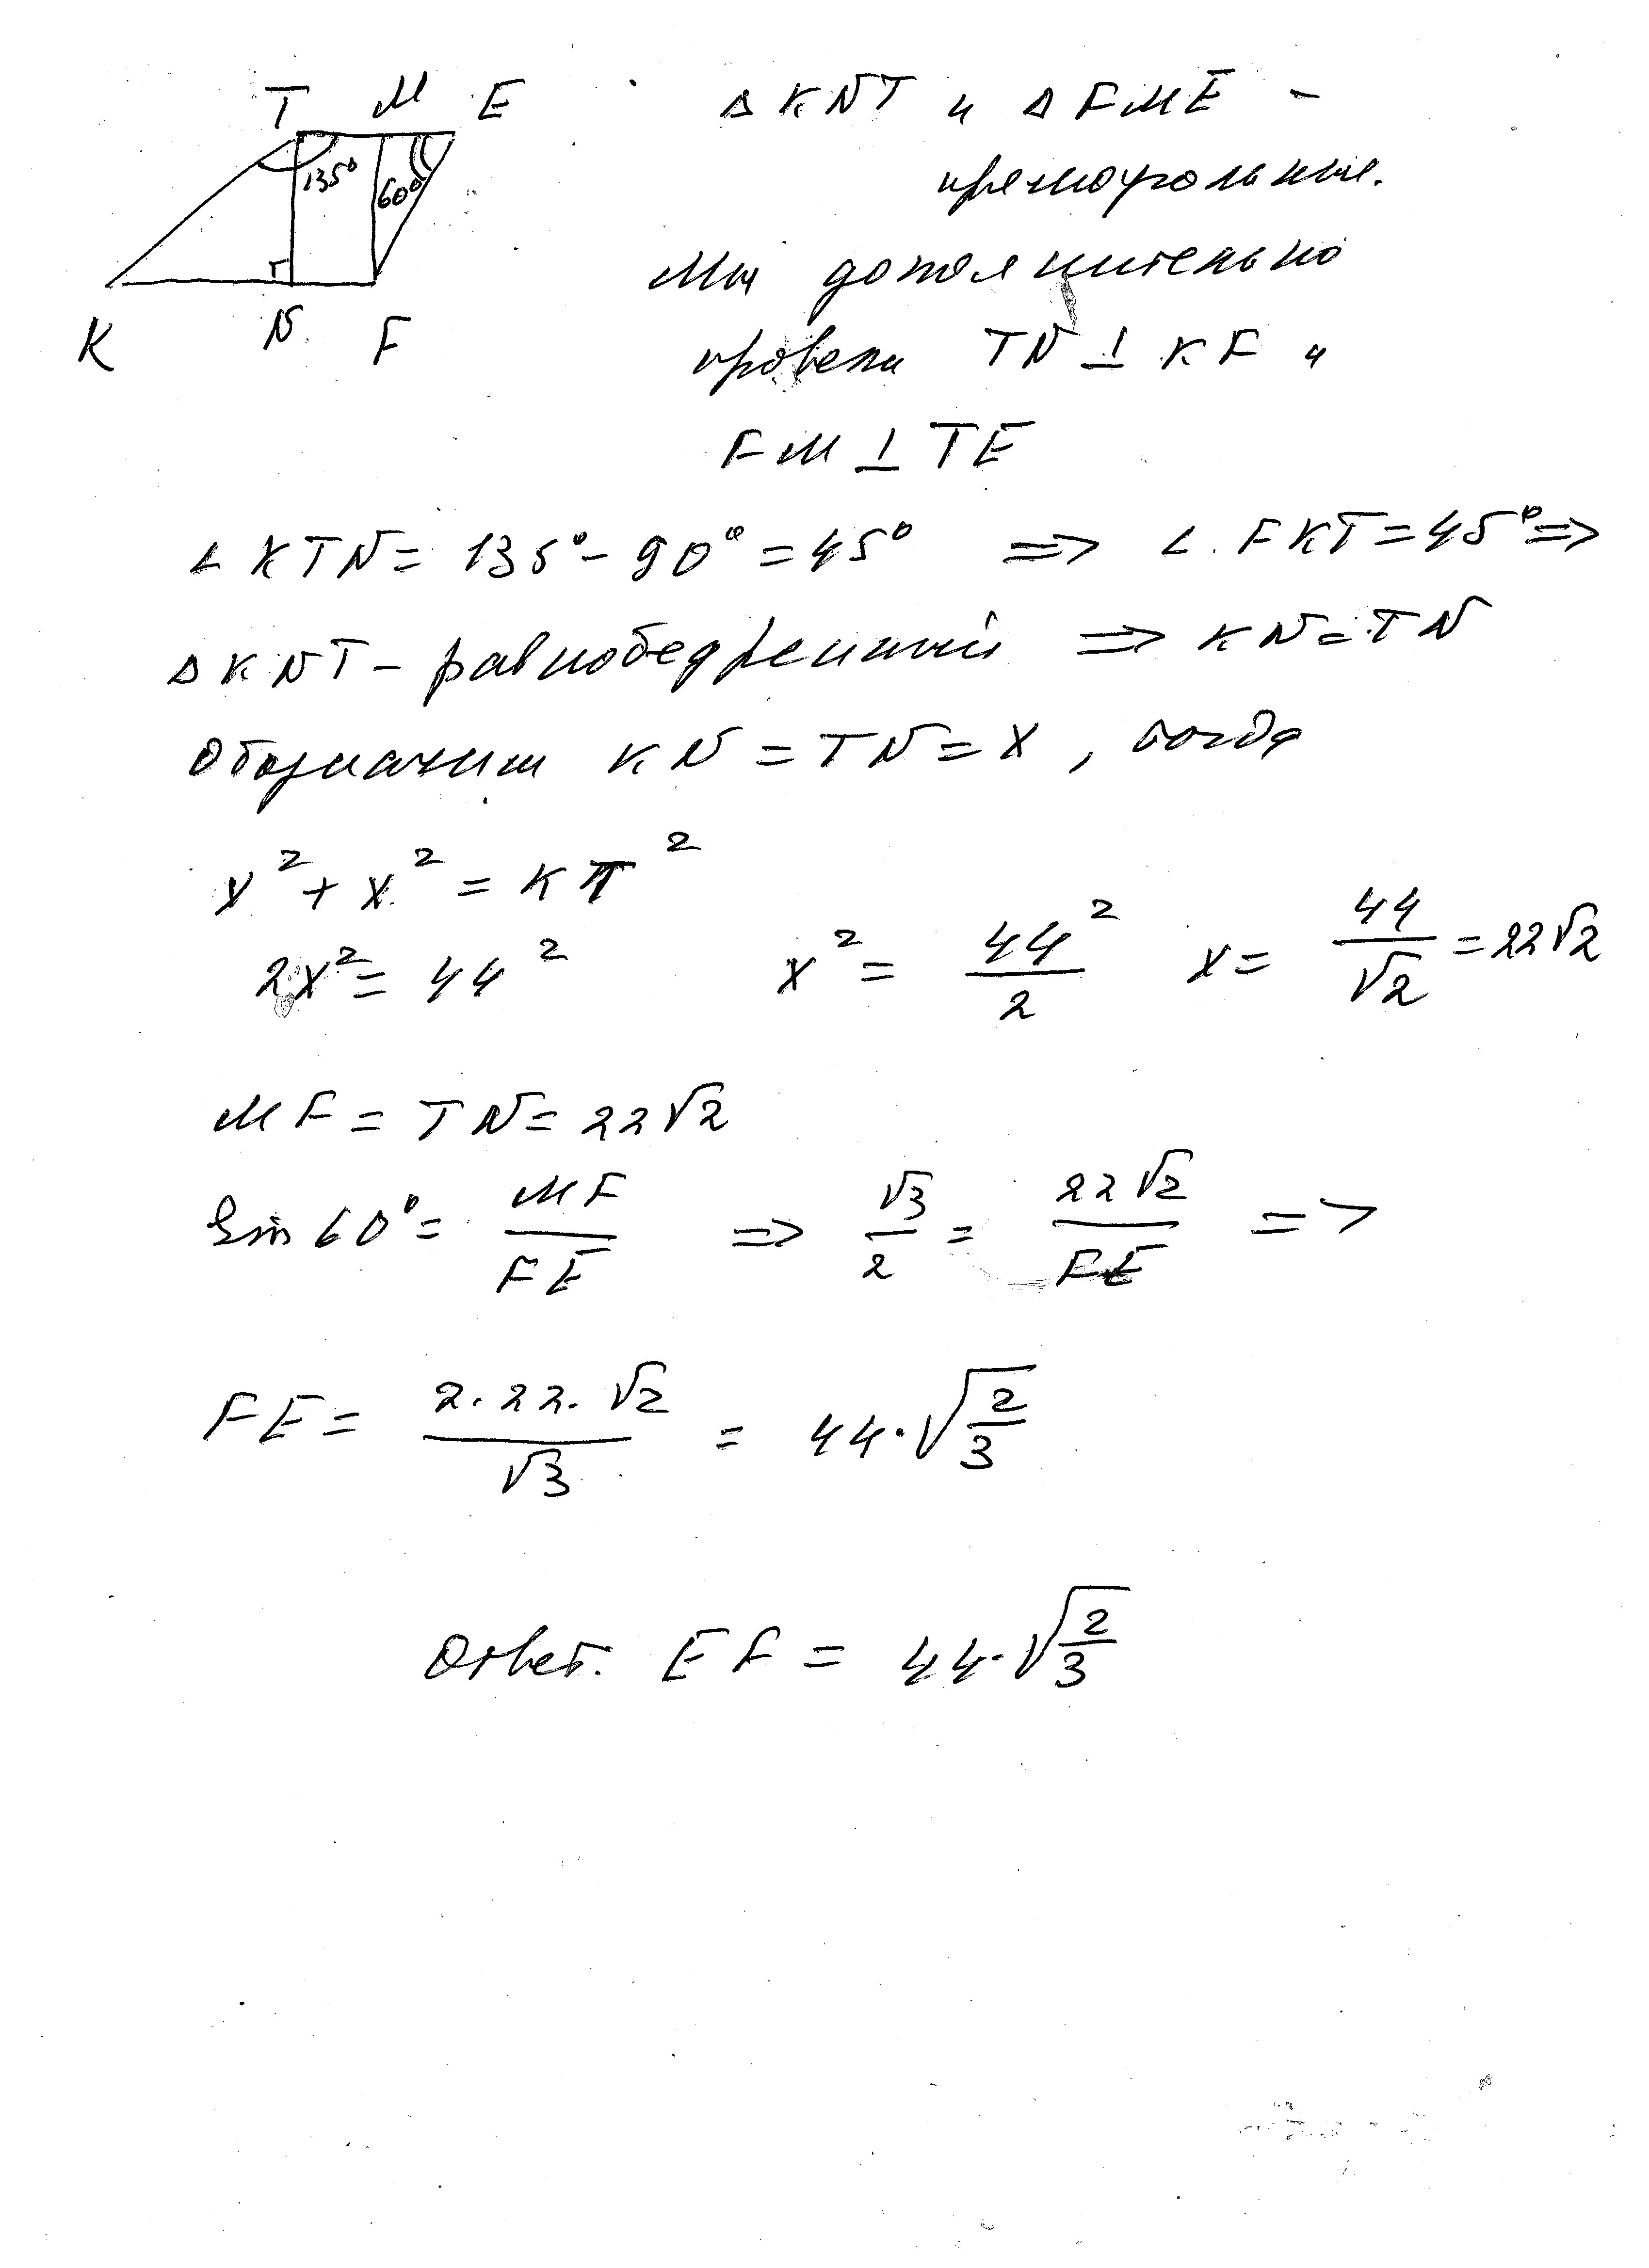 T M E
135° 60°
K N F
Δ KNT и Δ FME –
прямоугольные.
Мы дополнительно
провели TN ⊥ KF и
FM ⊥ TE
∠ KTN = 135° – 90° = 45° => ∠ FKT = 45° =>
Δ KNT – равнобедренный => KN = TN
Обозначим KN = TN = X, тогда
x² + x² = KT²
2x² = 44² x² = 44²/2 x = 44/√2 = 22√2
MF = TN = 22√2
Sin 60° = MF/FE => √3/2 = 22√2/FE =>
FE = 2·22·√2/√3 = 44·√(2/3)
Ответ. EF = 44·√(2/3)